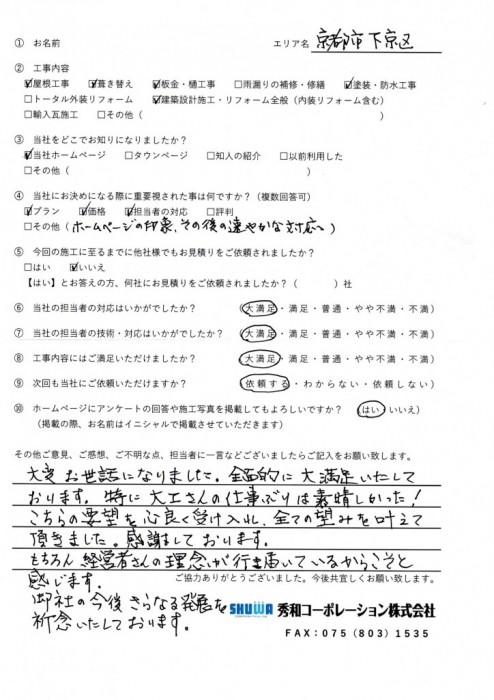 ① お名前
エリア名 京都市下京区
② 工事内容
☑屋根工事 ☑葺き替え ☑板金・樋工事 □雨漏りの補修・修繕 ☑塗装・防水工事
□トータル外装リフォーム ☑建築設計施工・リフォーム全般（内装リフォーム含む）
□輸入瓦施工 □その他（ ）
③ 当社をどこでお知りになりましたか？
☑当社ホームページ □タウンページ □知人の紹介 □以前利用した
□その他（ ）
④ 当社にお決めになる際に重要視された事は何ですか？（複数回答可）
☑プラン ☑価格 ☑担当者の対応 □評判
□その他（ホームページの印象、その後の速やかな対応へ）
⑤ 今回の施工に至るまでに他社様でもお見積りをご依頼されましたか？
□はい ☑いいえ
【はい】とお答えの方、何社にお見積りをご依頼されましたか？（ ）社
⑥ 当社の担当者の対応はいかがでしたか？ （大満足・満足・普通・やや不満・不満）
⑦ 当社の担当者の技術・対応はいかがでしたか？ （大満足・満足・普通・やや不満・不満）
⑧ 工事内容にはご満足いただけましたか？ （大満足・満足・普通・やや不満・不満）
⑨ 次回も当社にご依頼いただけますか？ （依頼する・わからない・依頼しない）
⑩ ホームページにアンケートの回答や施工写真を掲載してもよろしいですか？ （はい・いいえ）
（掲載の際、お名前はイニシャルで掲載させていただきます）
その他ご意見、ご感想、ご不明な点、担当者に一言などございましたらご記入をお願い致します。
大変お世話になりました。全面的に大満足いたして
おります。特に大工さんの仕事ぶりは素晴しかった！
こちらの要望を心良く受け入れ、全ての望みを叶えて
頂きました。感謝しております。
もちろん経営者さんの理念が行き届いているからこそと
感じます。
ご協力ありがとうございました。今後共宜しくお願い致します。
御社の今後さらなる発展を
祈念いたしております。
SHUWA 秀和コーポレーション株式会社
FAX：075（803）1535